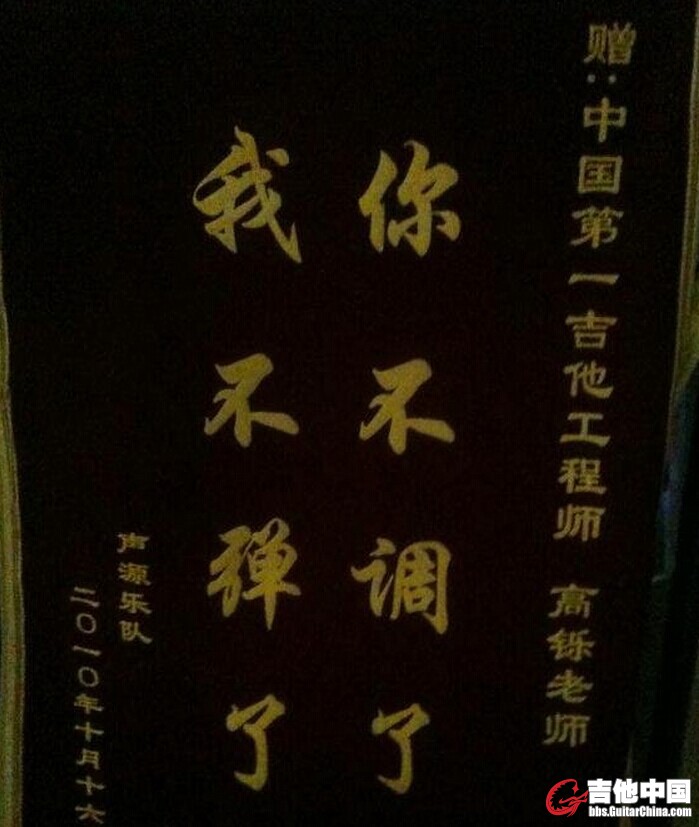 赠:中国第一吉他工程师 高铄老师
你不调了
我不弹了
声源乐队
二〇一〇年十月十六
吉他中国
bbs.GuitarChina.com